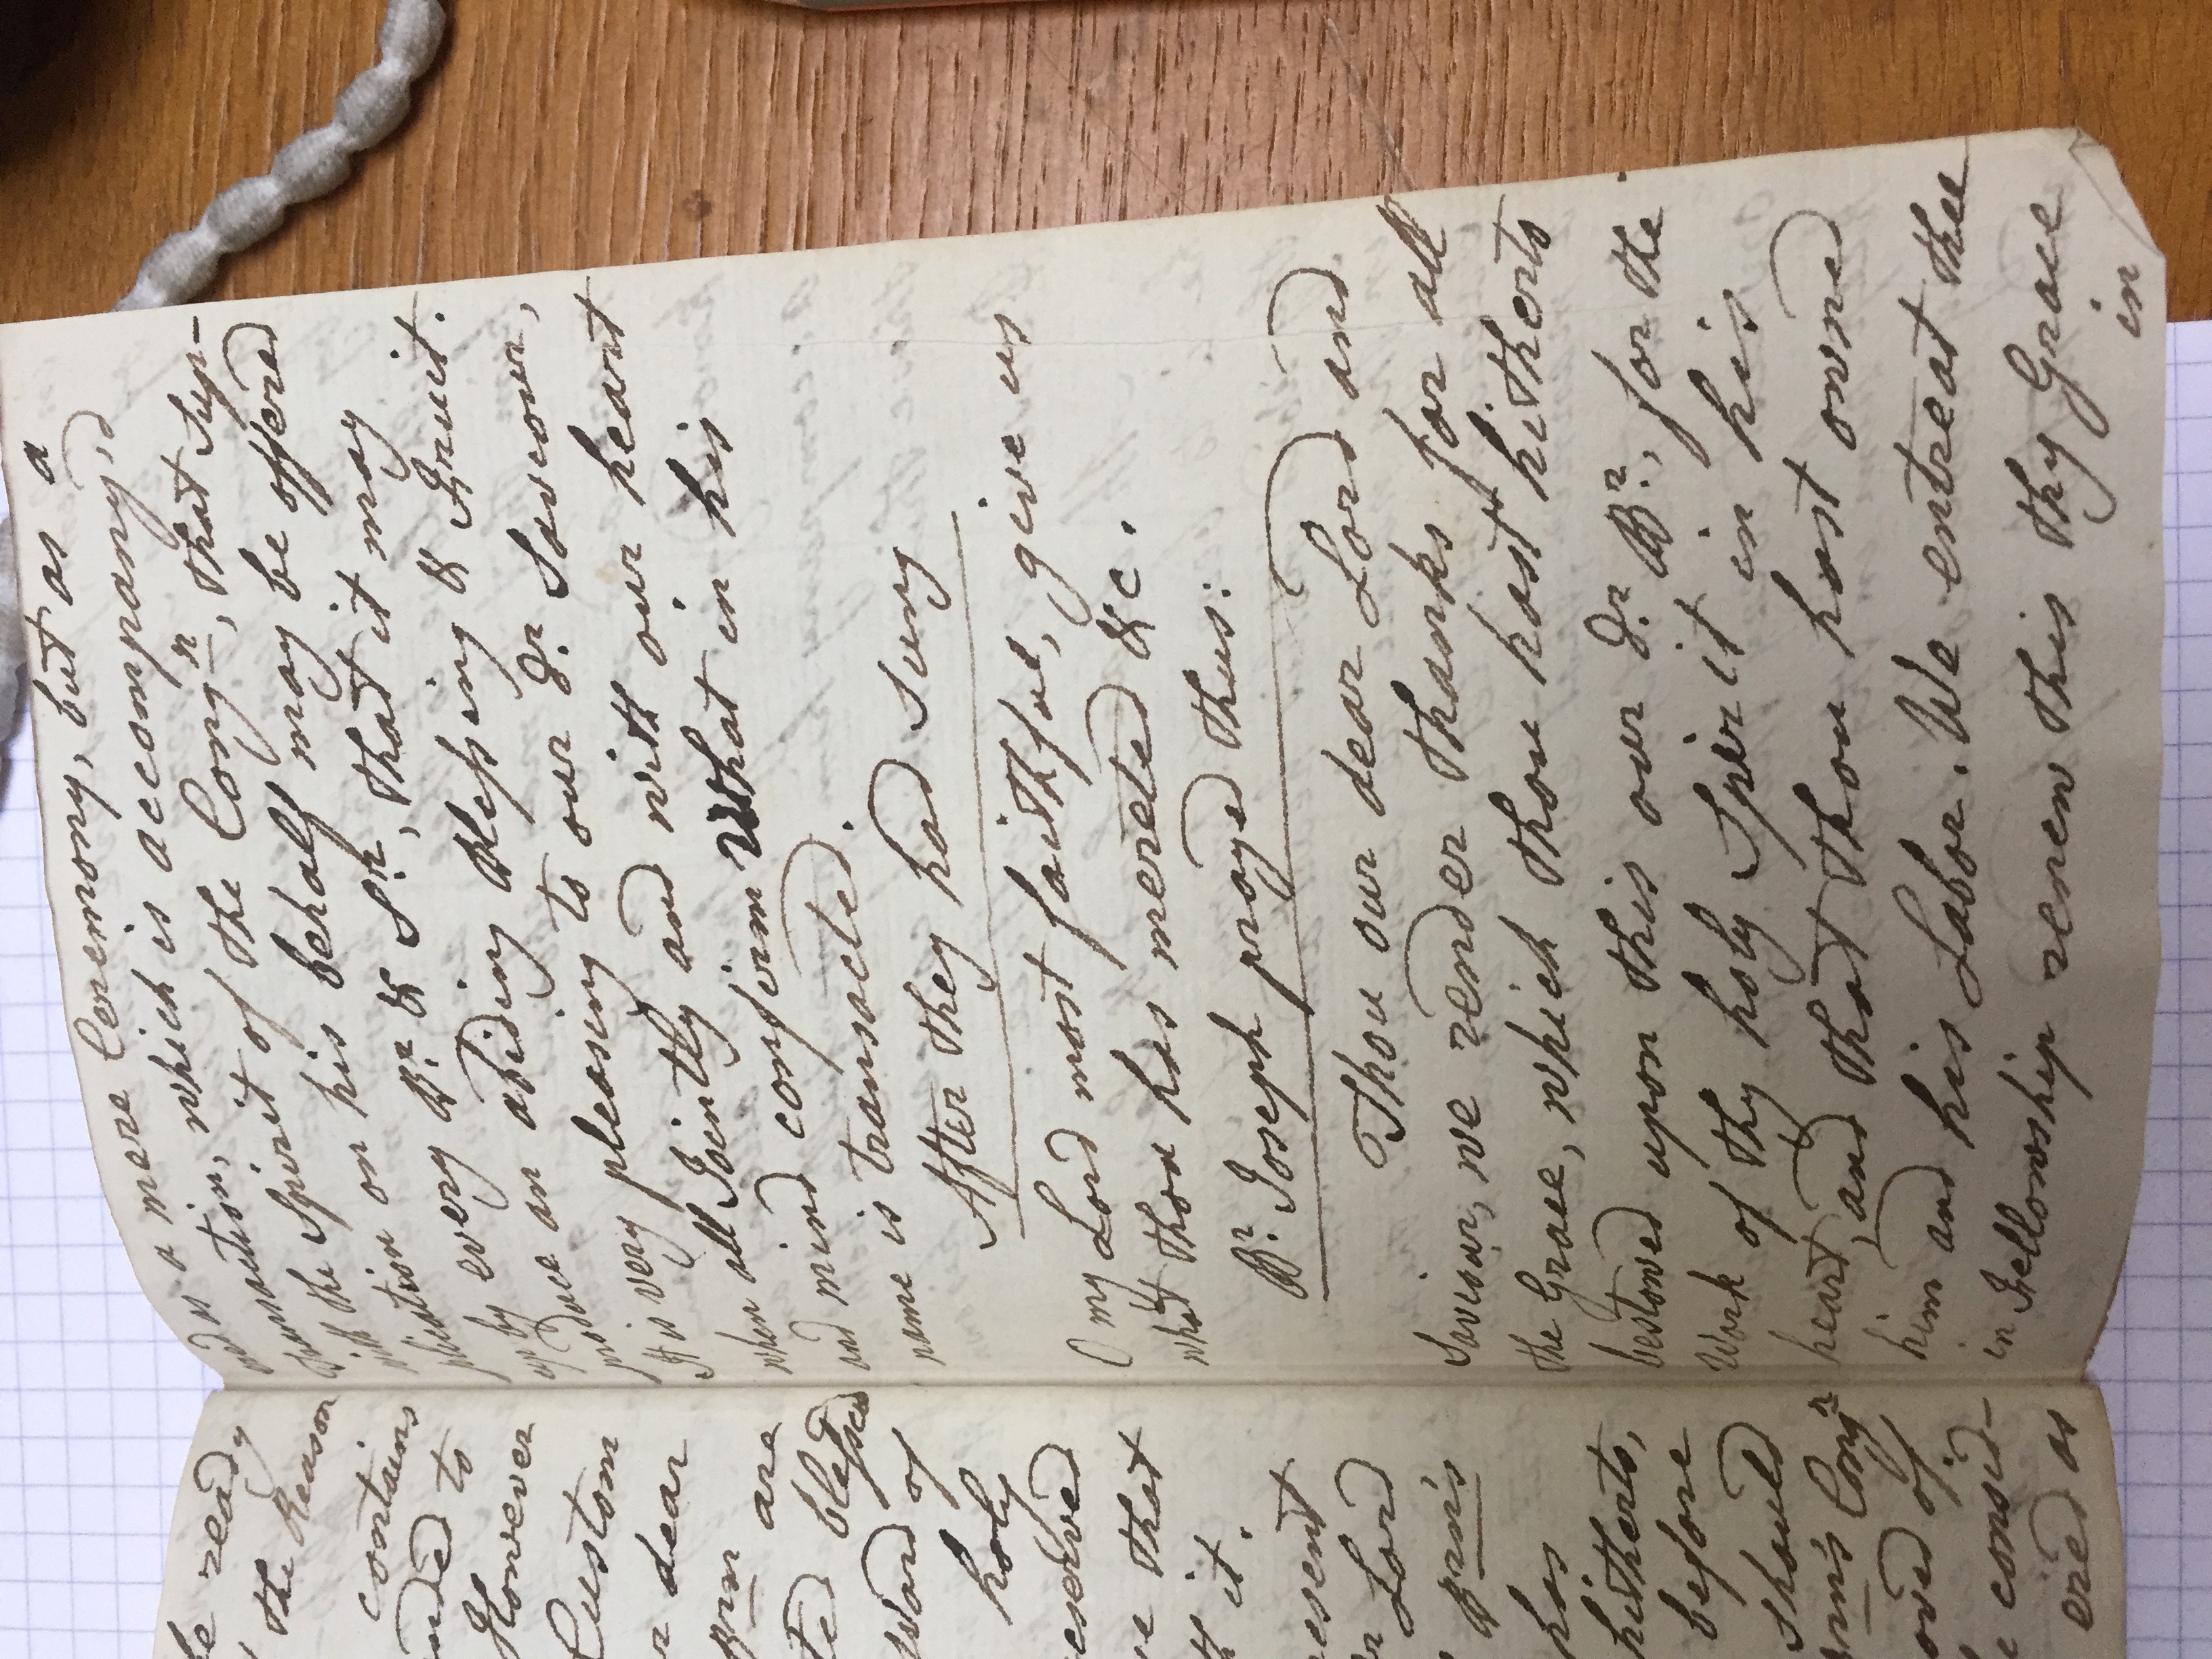 be ready
the Reason
contains
nded to
However
Custom
r dear
Brn are
ted blessed
Word of
holy
eserved
e that
th it.
resent
r Lord
Brn's
has
hitherto,
before
should
Brn's Congn
oved of.
e consid-
ered as
ered as a mere Ceremony, but as a
transaction, which is accompany'd
with the Spirit of the Congn, that Sup-
plication on his behalf may be offered
up by every Br. & Sr., that it may
produce an abiding Blessing & Fruit.
It is very pleasing to our dr. Saviour,
when all Jointly and with our heart
and mind confirm What in his
name is transacted.
After they had Sung
O my Lord most faithful, give us
what thou has mereted &c.
Br. Joseph prayed thus:
Thou our dear Lord and
Saviour, we render thanks for all
the Grace, which thou hast hitherto
bestowed upon this our dr. Br., for the
Work of thy holy Spirit in his
heart, and that thou hast owned
him and his Labor. We entreat thee
in Fellowship renew this thy Grace
in